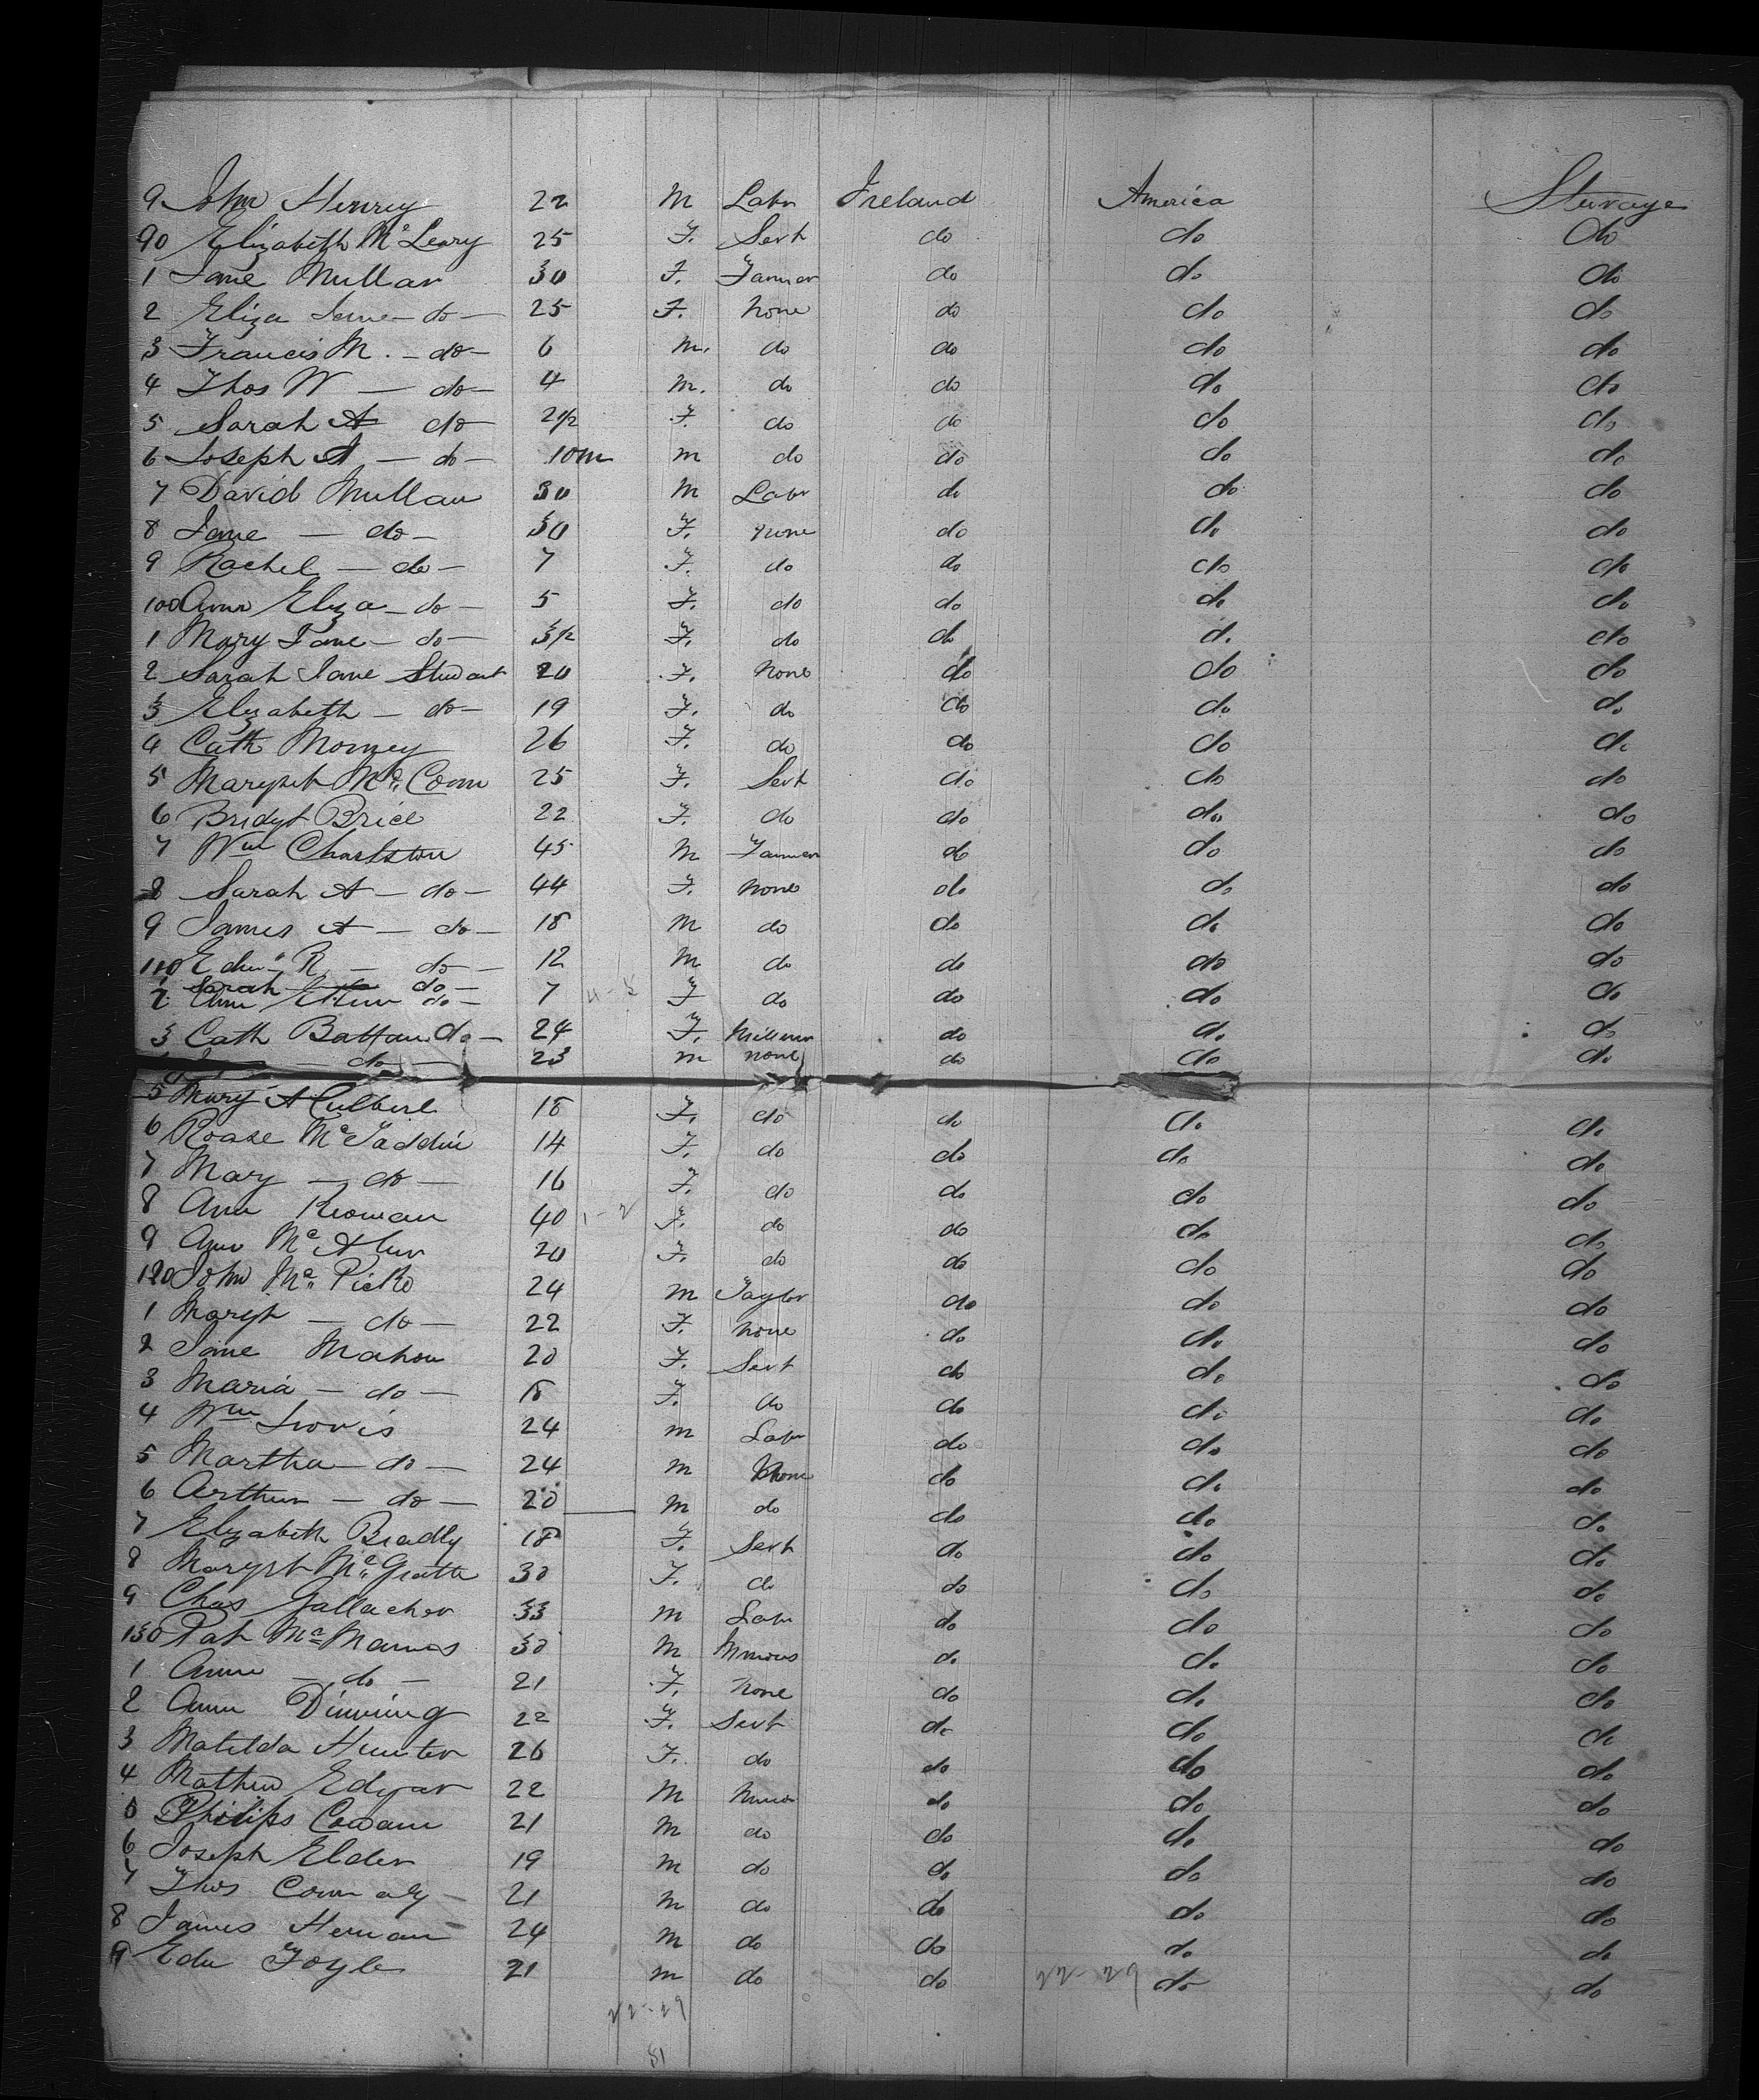 9 John Henry 22 M Labr Ireland America Steerage
90 Elizabeth McLeary 25 F. Servt do do do
1 Jane Mullar 30 F. Farmer do do do
2 Eliza Jane - do - 25 F. None do do do
3 Francis M. - do - 6 M. do do do do
4 Thos W - do - 4 M. do do do do
5 Sarah A do 2 1/2 F do do do do
6 Joseph A - do - 10m M do do do do
7 David Mullan 30 M Labr do do do
8 Jane - do - 30 F. None do do do
9 Rachel - do - 7 F. do do do do
100 Ann Eliza - do - 5 F. do do do do
1 Mary Jane - do - 3 1/2 F. do do do do
2 Sarah Jane Studart 20 F. None do do do
3 Elizabeth - do - 19 F. do do do do
4 Cath 26 F. do do do do
5 Margret Mc Comm 25 F. Servt do do do
6 Bridgt Brice 22 F. do do do do
7 Wm Charlston 45 M Farmer do do do
8 Sarah A - do - 44 F. None do do do
9 James A - do - 18 M do do do do
110 Edwd R - do - 12 M do do do do
1 Sarah do -
2 Ann Ellen do - 7 F do do do do
3 Cath Battan do - 24 F. do do do
do 23 M None do do do
5 Mary A Culbert 18 F. do do do do
6 Roase McFaddin 14 F. do do do do
7 Mary - do - 16 F. do do do do
8 Ann 40 F. do do do do
9 Ann Mc 20 F. do do do do
120 John Mc 24 M Taylor do do do
1 Margt - do - 22 F. None do do do
2 Jane Mahon 20 F. Servt do do do
3 Maria - do - 18 F. do do do do
4 Wm 24 M Labr do do do
5 Martha - do - 24 M None do do do
6 Arthur - do - 20 M do do do do
7 Elizabeth Bradly 18 F. Servt do do do
8 Margrt Mc Gratte 30 F. do do do do
9 Chas Gallacher 33 M Labr do do do
130 Pat Mc Manus 30 M do do do
1 Anne - do - 21 F. None do do do
2 Ann Dinning 22 F. Servt do do do
3 Matilda Hunter 26 F. do do do do
4 Mathew Edgar 22 M do do do
5 Philips Cowan 21 M do do do do
6 Joseph Elder 19 M do do do do
7 Thos Connaly - 21 M do do do do
8 James Hernan 24 M do do do do
9 Edw Foyle 21 M do do do do
22-29
22-29